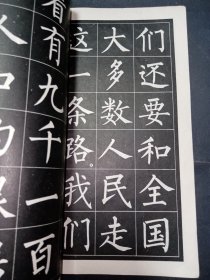 们还要和全国
大多数人民走
这一条路。我们
有九千一百